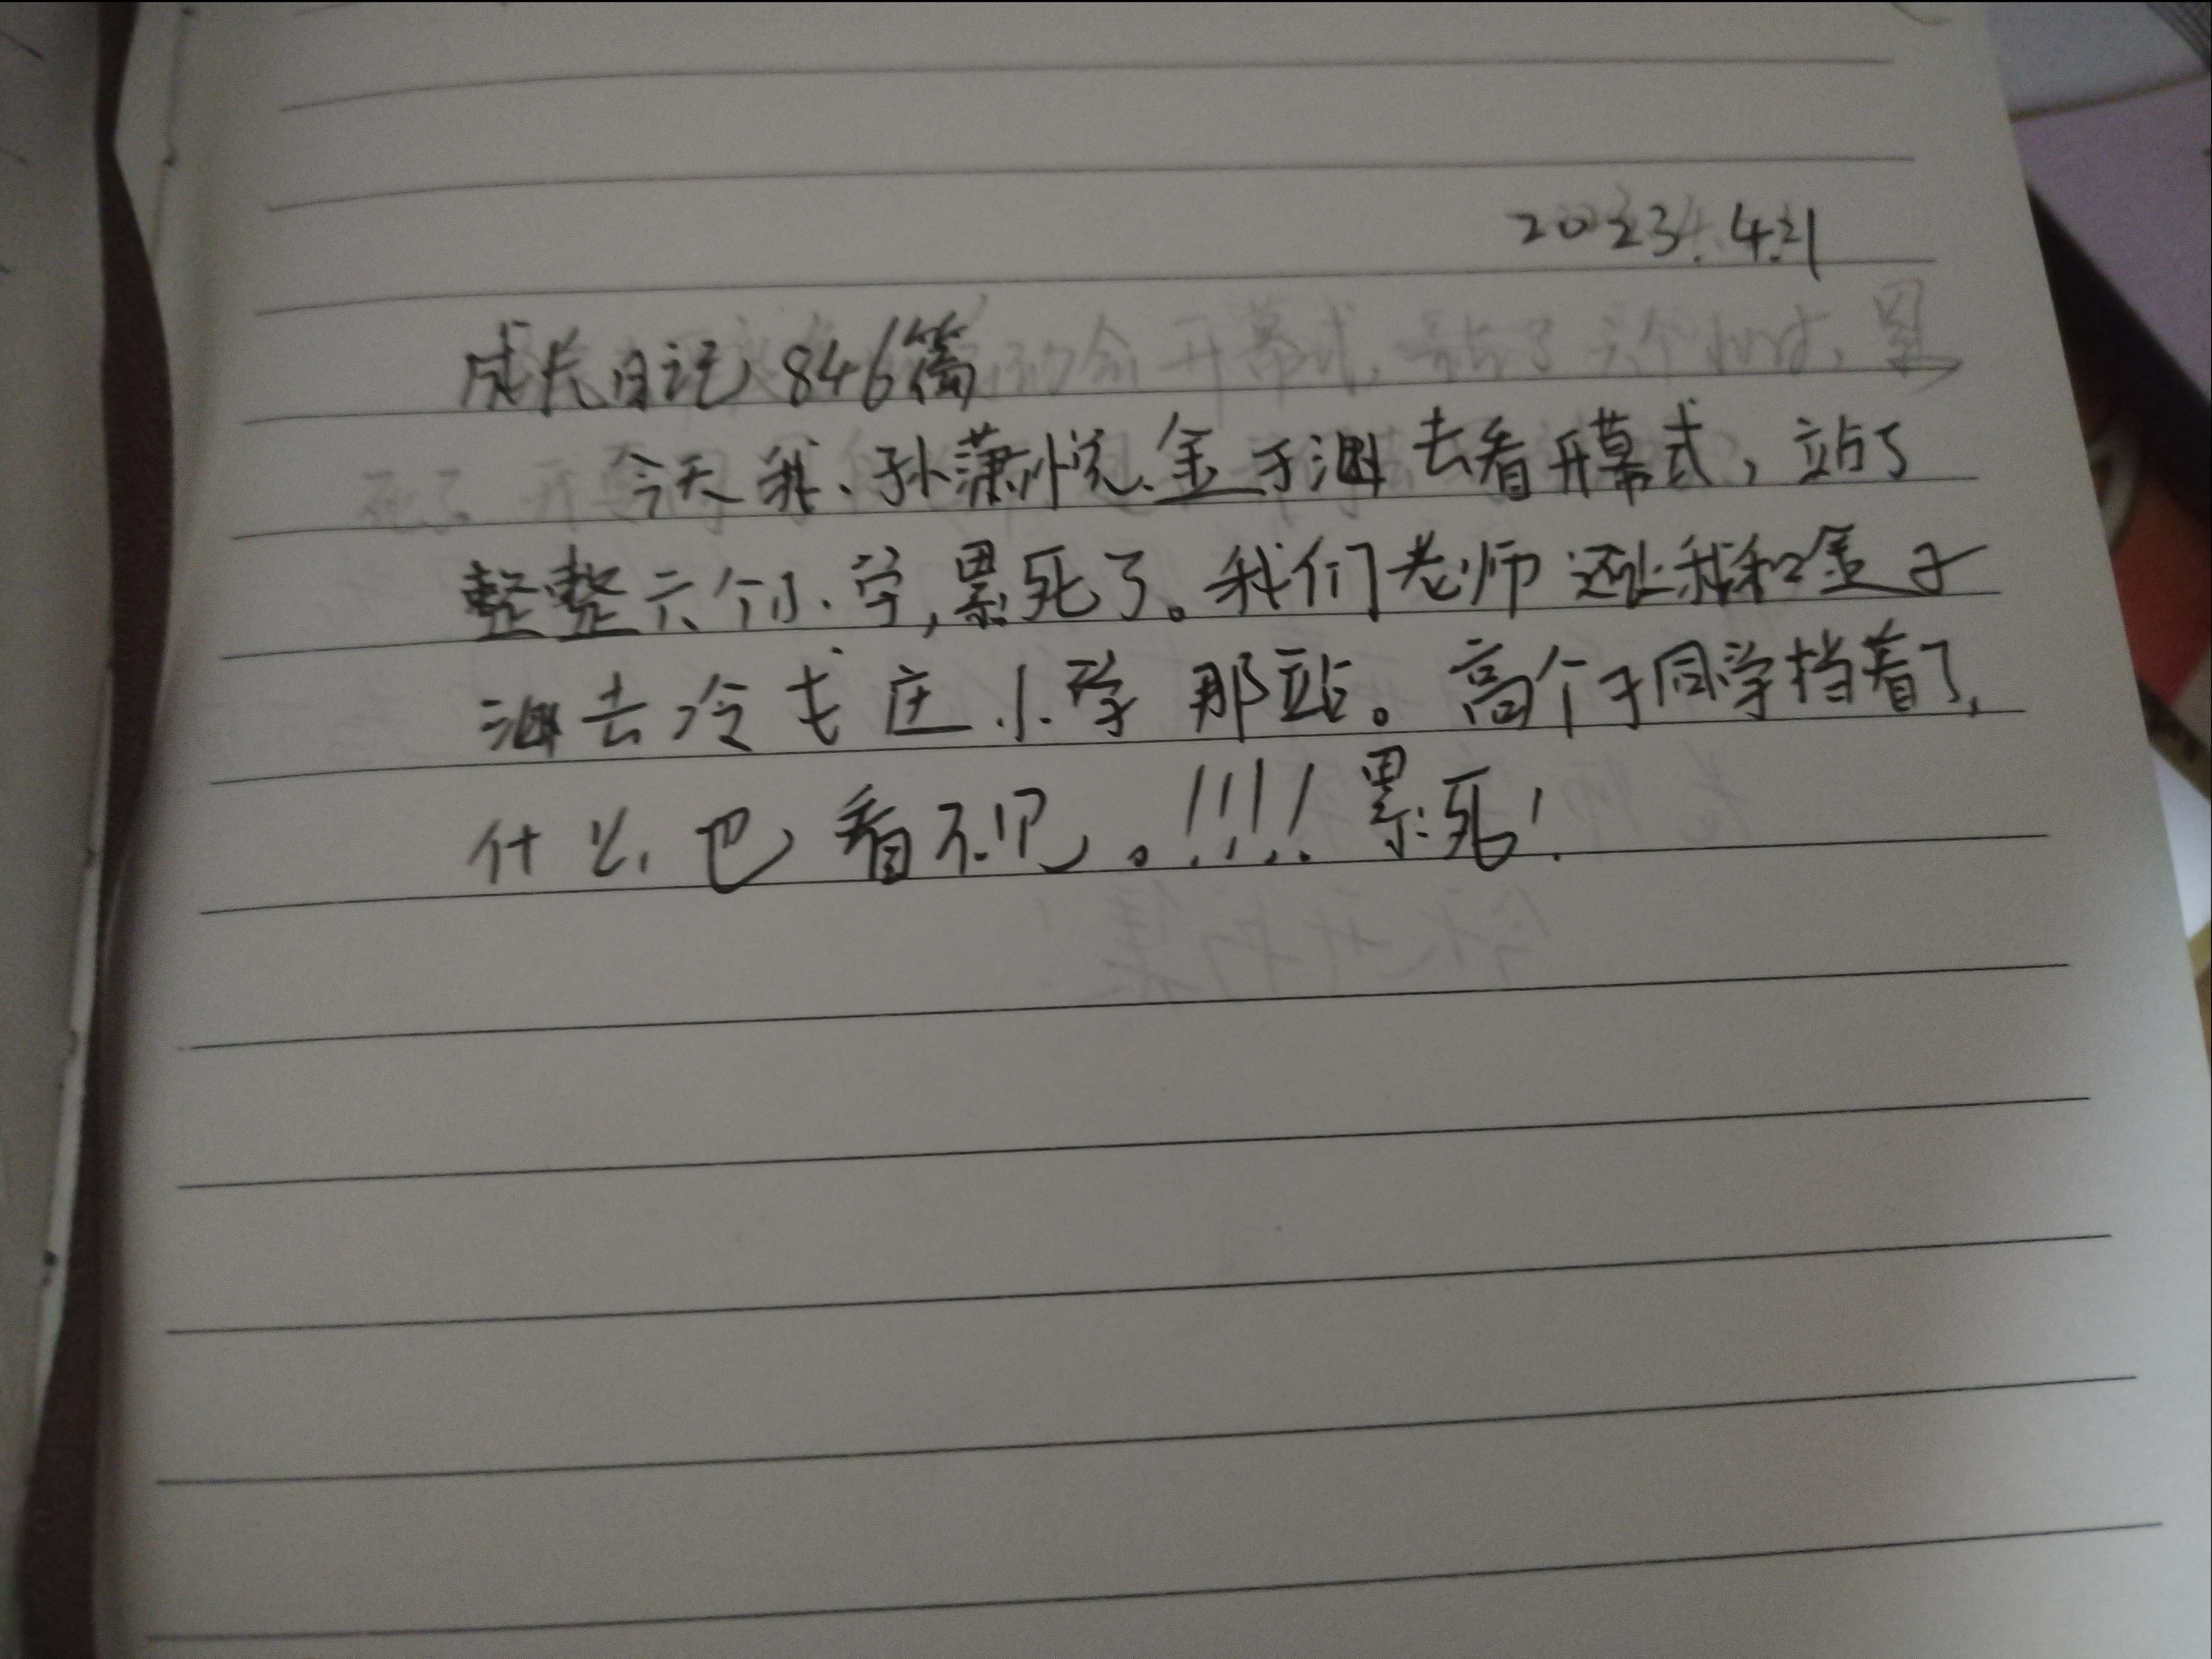 2023.4.21
成长日记846篇
今天我、孙潇悦、金子涵去看开幕式，站了
整整六个小学,累死了。我们老师还让我和金子
涵去冷戈庄小学那站。高个子同学挡着了,
什么也看不见。!!!!累死!